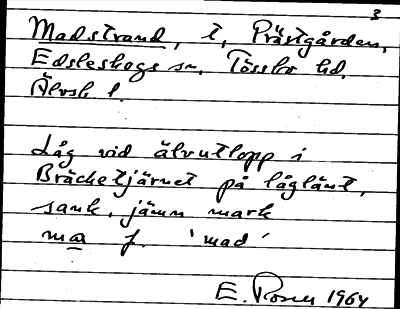 3
Madstrand, t, Prästgården,
Edsleskogs sn, Tössbo hd,
Älvsb l.
Låg vid älvutlopp i
Bräcketjärnet på låglänt,
sank, jämn mark
ma f. 'mad'
E. Rosen 1964